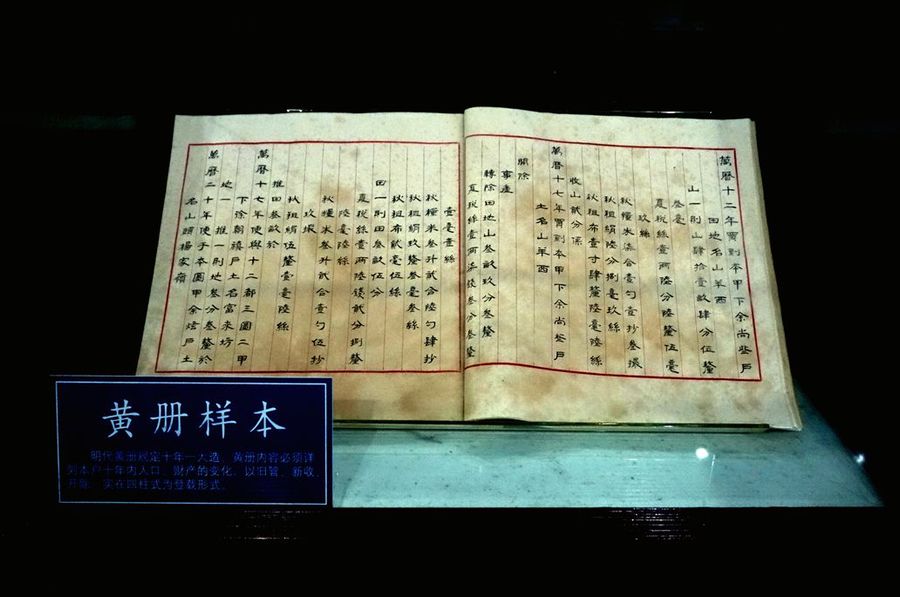 萬曆十二年買到本甲下余尚些戶
田地名山羊西
山一則山肆拾壹畝肆分伍釐
叁毫
夏稅絲壹兩陸分陸釐伍毫
玖絲
秋糧米柒合壹勺壹抄叁撮
秋租絹陸分捌毫玖絲
秋租布壹寸肆釐陸毫陸絲
收山貳分係
萬曆十七年買到本甲下余尚些戶
土名山羊西
開除
事產
轉除田地山叁畝玖分叁釐
夏稅絲壹兩柒錢叁分叁釐
壹毫壹絲
秋糧米叁升貳合陸勺肆抄
秋租絹玖釐叁毫叁絲
秋租布貳毫伍絲
田一則田叁畝伍分
夏稅絲壹兩陸錢貳分捌釐
陸毫陸絲
秋糧米叁升貳合壹勺伍抄
玖撮
秋租絹伍釐壹毫陸絲
推田叁畝於
萬曆十七年使與十二都三圖二甲
下徐朝禧戶土名富來坊
地一推一則地叁分叁釐於
萬曆二十年使于本圖甲余焙戶土
名山頭楊家嶺
黄册样本
明代黄册规定十年一大造，黄册内容必须详
列本户十年内人口、财产的变化，以旧管、新收、
开除、实在四柱式为登载形式。